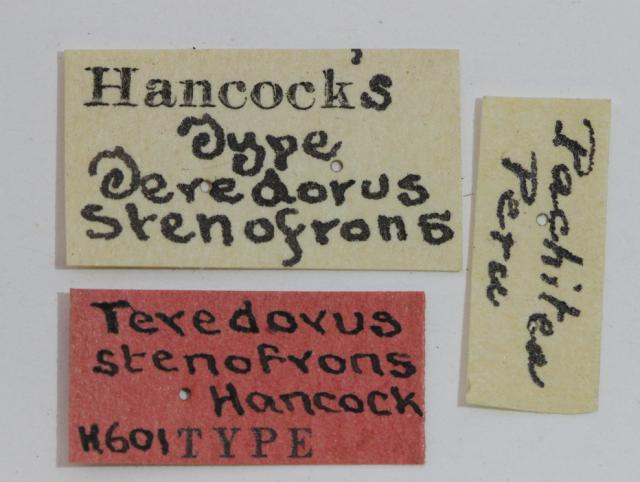 Hancock's
Type
Teredorus
stenofrons
Pachitea
Peru
Teredorus
stenofrons
Hancock
H601 TYPE